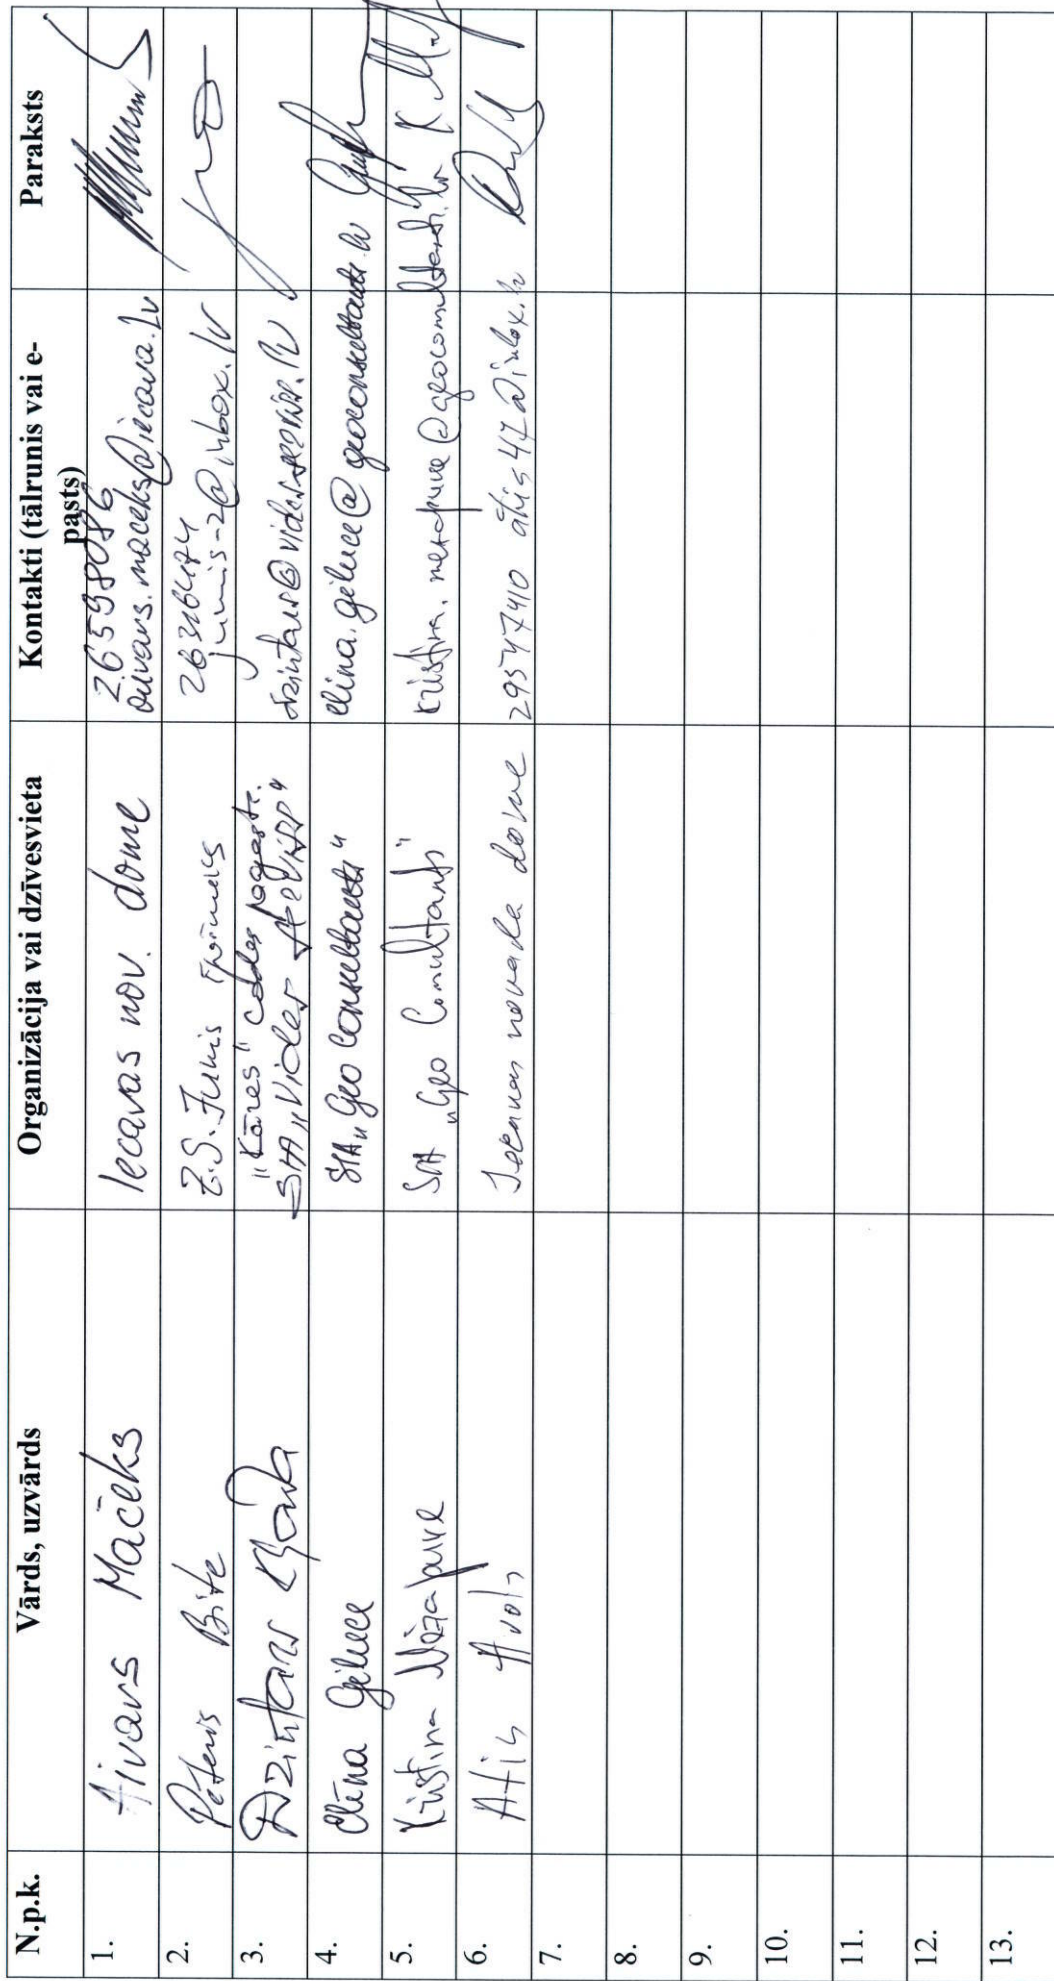 N.p.k. Vārds, uzvārds Organizācija vai dzīvesvieta Kontakti (tālrunis vai e-pasts) Paraksts
1. Aivars Mačeks Iecavas nov. dome 26598086
aivars.maceks@iecava.lv
2. Pēteris Bite Z.S. Jumis īpašnieks 26316474
jumis-2@inbox.lv
3. Dzintars "Kāres" Codes pagasts.
SIA "Vides
4. Elīna Gēluce SIA "Geo Consultants" elina.geluce@geoconsultants.lv
5. Kristīna Mežapuķe SIA "Geo Consultants"
6. Atis Avots Iecavas novada dome 29547410 atis47@inbox.lv
7.
8.
9.
10.
11.
12.
13.